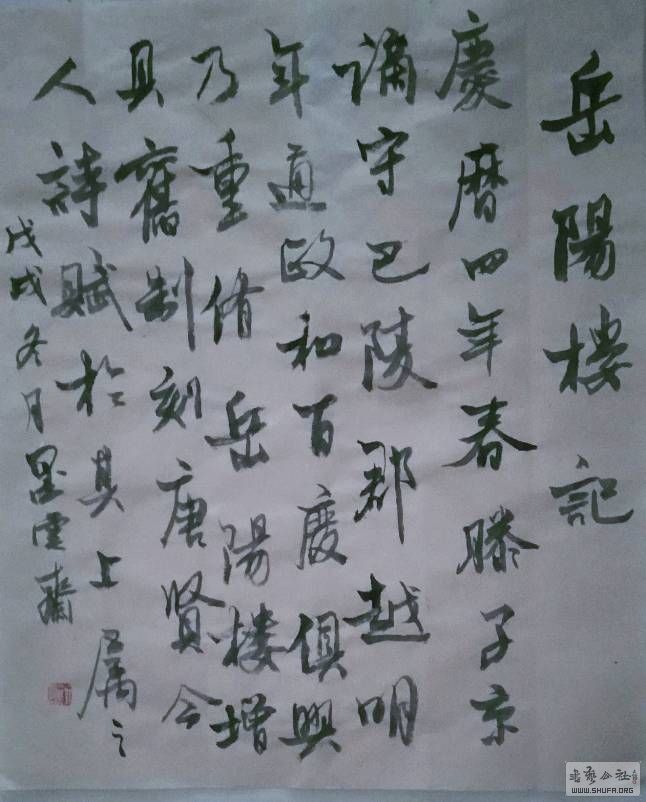 岳陽樓記
慶曆四年春滕子京
謫守巴陵郡越明
年通政和百廢俱興
乃重修岳陽樓增
具舊制刻唐賢今
人詩賦於其上屬之
戊戌冬月墨雲齋
書藝公社
WWW.SHUFA.ORG